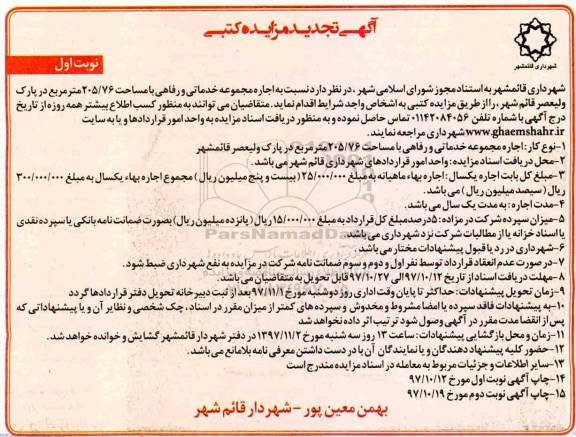 آگهی تجدید مزایده کتبی
شهرداری قائمشهر
نوبت اول
شهرداری قائمشهر به استناد مجوز شورای اسلامی شهر ، در نظر دارد نسبت به اجاره مجموعه خدماتی و رفاهی با مساحت ۲۰۵/۷۶ مترمربع در پارک
ولیعصر قائم شهر ، را از طریق مزایده کتبی به اشخاص واجد شرایط اقدام نماید. متقاضیان می توانند به منظور کسب اطلاع بیشتر همه روزه از تاریخ
درج آگهی با شماره تلفن ۰۱۱۴۲۰۸۴۰۵۶ تماس حاصل نموده و به منظور دریافت اسناد مزایده به واحد امور قراردادها و یا به سایت
www.ghaemshahr.ir شهرداری مراجعه نمایند.
۱-نوع کار : اجاره مجموعه خدماتی و رفاهی با مساحت ۲۰۵/۷۶ مترمربع در پارک ولیعصر قائمشهر
۲-محل دریافت اسناد مزایده : واحد امور قراردادهای شهرداری قائم شهر می باشد.
۳-مبلغ کل بابت اجاره یکسال : اجاره بهاء ماهیانه به مبلغ ۲۵/۰۰۰/۰۰۰ (بیست و پنج میلیون ریال ) مجموع اجاره بهاء یکسال به مبلغ ۳۰۰/۰۰۰/۰۰۰
ریال (سیصد میلیون ریال ) می باشد.
۴-مدت اجاره : به مدت یک سال می باشد.
۵-میزان سپرده شرکت در مزاده : ۵درصد مبلغ کل قرارداد به مبلغ ۱۵/۰۰۰/۰۰۰ ریال (پانزده میلیون ریال) بصورت ضمانت نامه بانکی یا سپرده نقدی
یا اسناد خزانه یا از مطالبات شرکت نزد شهرداری می باشد.
۶-شهرداری در رد یا قبول پیشنهادات مختار می باشد.
۷-در صورت عدم انعقاد قرارداد توسط نفر اول و دوم و سوم ضمانت نامه شرکت در مزایده به نفع شهرداری ضبط شود.
۸-مهلت دریافت اسناد از تاریخ ۹۷/۱۰/۱۲ الی ۹۷/۱۰/۲۷ قابل تحویل به متقاضیان می باشد.
۹-زمان تحویل پیشنهادات : حداکثر تا پایان وقت اداری روز دوشنبه مورخ ۹۷/۱۱/۱ بعد از ثبت دبیرخانه تحویل دفتر قراردادها گردد
۱۰-به پیشنهادات فاقد سپرده یا امضا مشروط و مخدوش و سپرده های کمتر از میزان مقرر در اسناد، چک شخصی و نظایر آن و یا پیشنهاداتی که
پس از انقضا مدت مقرر در آگهی وصول شود ترتیب اثر داده نخواهد شد
۱۱-زمان و محل بازگشایی پیشنهادات : ساعت ۱۳ روز سه شنبه مورخ ۱۳۹۷/۱۱/۲ در دفتر شهردار قائمشهر گشایش و خوانده خواهد شد.
۱۲-حضور کلیه پیشنهاد دهندگان و یا نمایندگان آن با در دست داشتن معرفی نامه بلامانع می باشد.
۱۳-سایر اطلاعات و جزئیات مربوط به معامله در اسناد مزایده مندرج است
۱۴-چاپ آگهی نوبت اول مورخ ۹۷/۱۰/۱۲
۱۵-چاپ آگهی نوبت دوم مورخ ۹۷/۱۰/۱۹
بهمن معین پور - شهردار قائم شهر
ParsNamadData